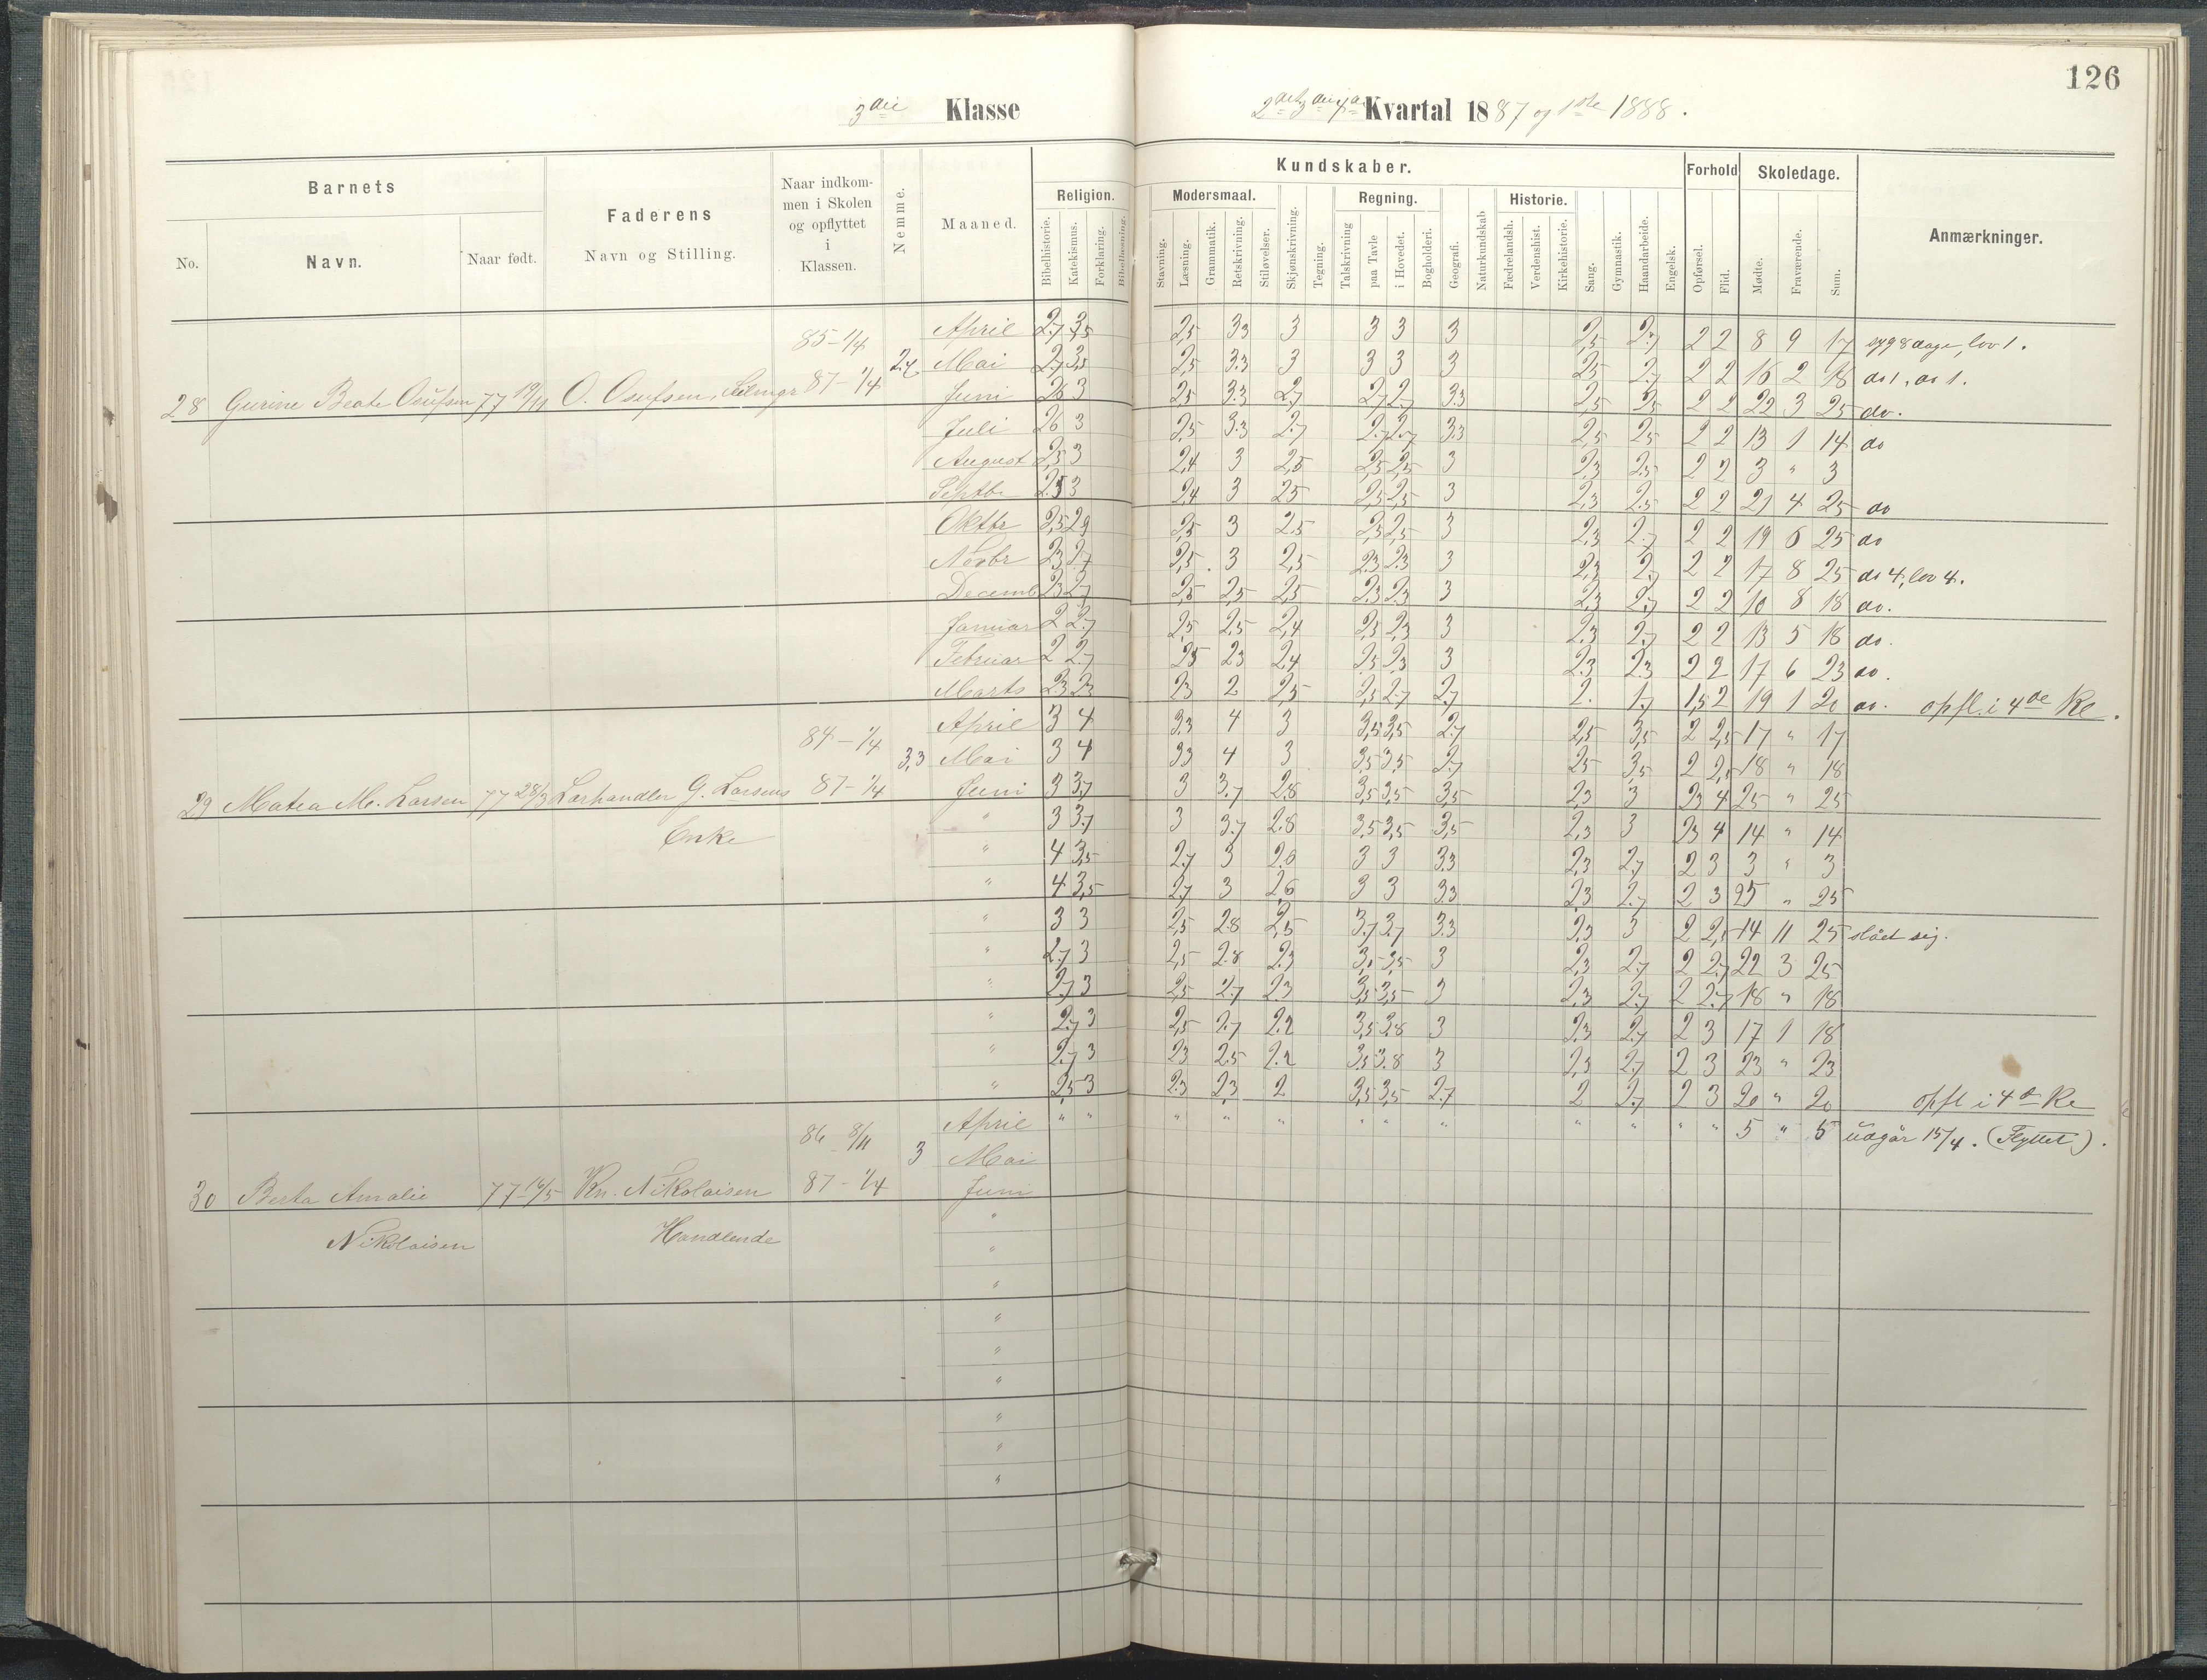 126
3die Klasse
Kvartal 1887 og 1ste 1888.
Barnets
Faderens
Naar indkommen i Skolen og opflyttet i Klassen.
Nemme.
Maaned.
Kundskaber.
Forhold
Skoledage.
Anmærkninger.
No.
Navn.
Naar født.
Navn og Stilling.
Religion.
Modersmaal.
Regning.
Historie.
Bibelhistorie.
Katekismus.
Forklaring.
Bibellæsning.
Stavning.
Læsning.
Grammatik.
Retskrivning.
Stiløvelser.
Skjønskrivning.
Tegning.
Talskrivning
paa Tavle
i Hovedet.
Bogholderi.
Geografi.
Naturkundskab
Fædrelandsh.
Verdenshist.
Kirkehistorie.
Sang.
Gymnastik.
Haandarbeide.
Engelsk.
Opførsel.
Flid.
Mødte.
Fraværende.
Sum.
85-1/4 April 2.7 3,5 2,5 3.3 3 3 3 3 2,5 2.7 2 2 8 9 17 syg 8 dage, lov 1.
Mai 2.7 3,5 2,5 3.3 3 3 3 3 2,5 2.7 2 2 16 2 18 do 1, do 1.
28 Gurine Beate Osufsen 77 19/11 O. Osufsen, 87-1/4 Juni 2.6 3 2.5 3.3 2.7 2.7 2.7 3.3 2,5 2.5 2 2 22 3 25 do.
Juli 2.6 3 2,5 3.3 2.7 2.7 2.7 3.3 2,5 2.5 2 2 13 1 14 do
August 2,5 3 2,4 3 2,5 2,5 2,5 3 2,3 2.5 2 2 3 " 3
Septbr 2.5 3 2,4 3 2.5 2,5 2,5 3 2,3 2.5 2 2 21 4 25 do
Oktbr 2,5 2.9 2,5 3 2.5 2,3 2,5 3 2,3 2.7 2 2 19 6 25 do
Novbr 2.3 2.7 2,5 3 2,5 2.3 2.3 3 2,3 2.7 2 2 17 8 25 do 4, lov 4.
Decemb 2.3 2.7 2,5 2,5 2,5 2.3 2.3 3 2,3 2.7 2 2 10 8 18 do.
Januar 2 2.7 2,5 2,5 2,4 2,3 2,3 3 2,3 2.7 2 2 13 5 18 do.
Februar 2 2.7 2.5 2.3 2,4 2,5 2,3 3 2.3 2.3 2 2 17 6 23 do.
Marts 2.3 2.3 2.3 2 2,5 2,5 2.7 2.7 2. 1.7 1,5 2 19 1 20 do. opfl. i 4de Kl.
84-1/4 April 3 4 3,3 4 3 3,5 3,5 2.7 2,5 3,5 2 2,5 17 " 17
3,3 Mai 3 4 3.3 4 3 3,5 3,5 2.7 2,5 3,5 2 2,5 18 " 18
29 Matea M. Larsen 77 28/3 Lærhandler G. Larsens 87-1/4 Juni 3 3.7 3 3.7 2.8 3,5 3,5 3,5 2,3 3 2.3 4 25 " 25
Enke " 3 3.7 3 3.7 2.8 3,5 3,5 3,5 2,3 3 2.3 4 14 " 14
" 4 3,5 2.7 3 2.6 3 3 3.3 2,3 2.7 2 3 3 " 3
" 4 3,5 2.7 3 2.6 3 3 3.3 2,3 2.7 2 3 25 " 25
" 3 3 2,5 2.8 2,5 3.7 3.7 3.3 2,3 3 2 2,5 14 11 25 slået sig.
" 2.7 3 2,5 2.8 2.3 3,5 3,5 3 2,3 2.7 2 2.7 22 3 25
" 2.7 3 2,5 2.7 2.3 3,5 3,5 3 2,3 2.7 2 2.7 18 " 18
" 2.7 3 2,5 2.7 2.2 3,5 3.8 3 2,3 2.7 2 3 17 1 18
" 2.7 3 2.3 2.5 2.2 3,5 3.8 3 2,3 2.7 2 3 23 " 23
" 2.5 3 2.3 2.3 2 3,5 3,5 2.7 2 2.7 2 3 20 " 20 opfl i 4de Kl
86 8/11 April " " " " " " " " " " " " 5 " 5 udgår 15/4. (Flyttet).
3 Mai
30 Berta Amalie 77-16/5 Kn. Nikolaisen 87-1/4 Juni
Nikolaisen Handlende "
"
"
"
"
"
"
"
"